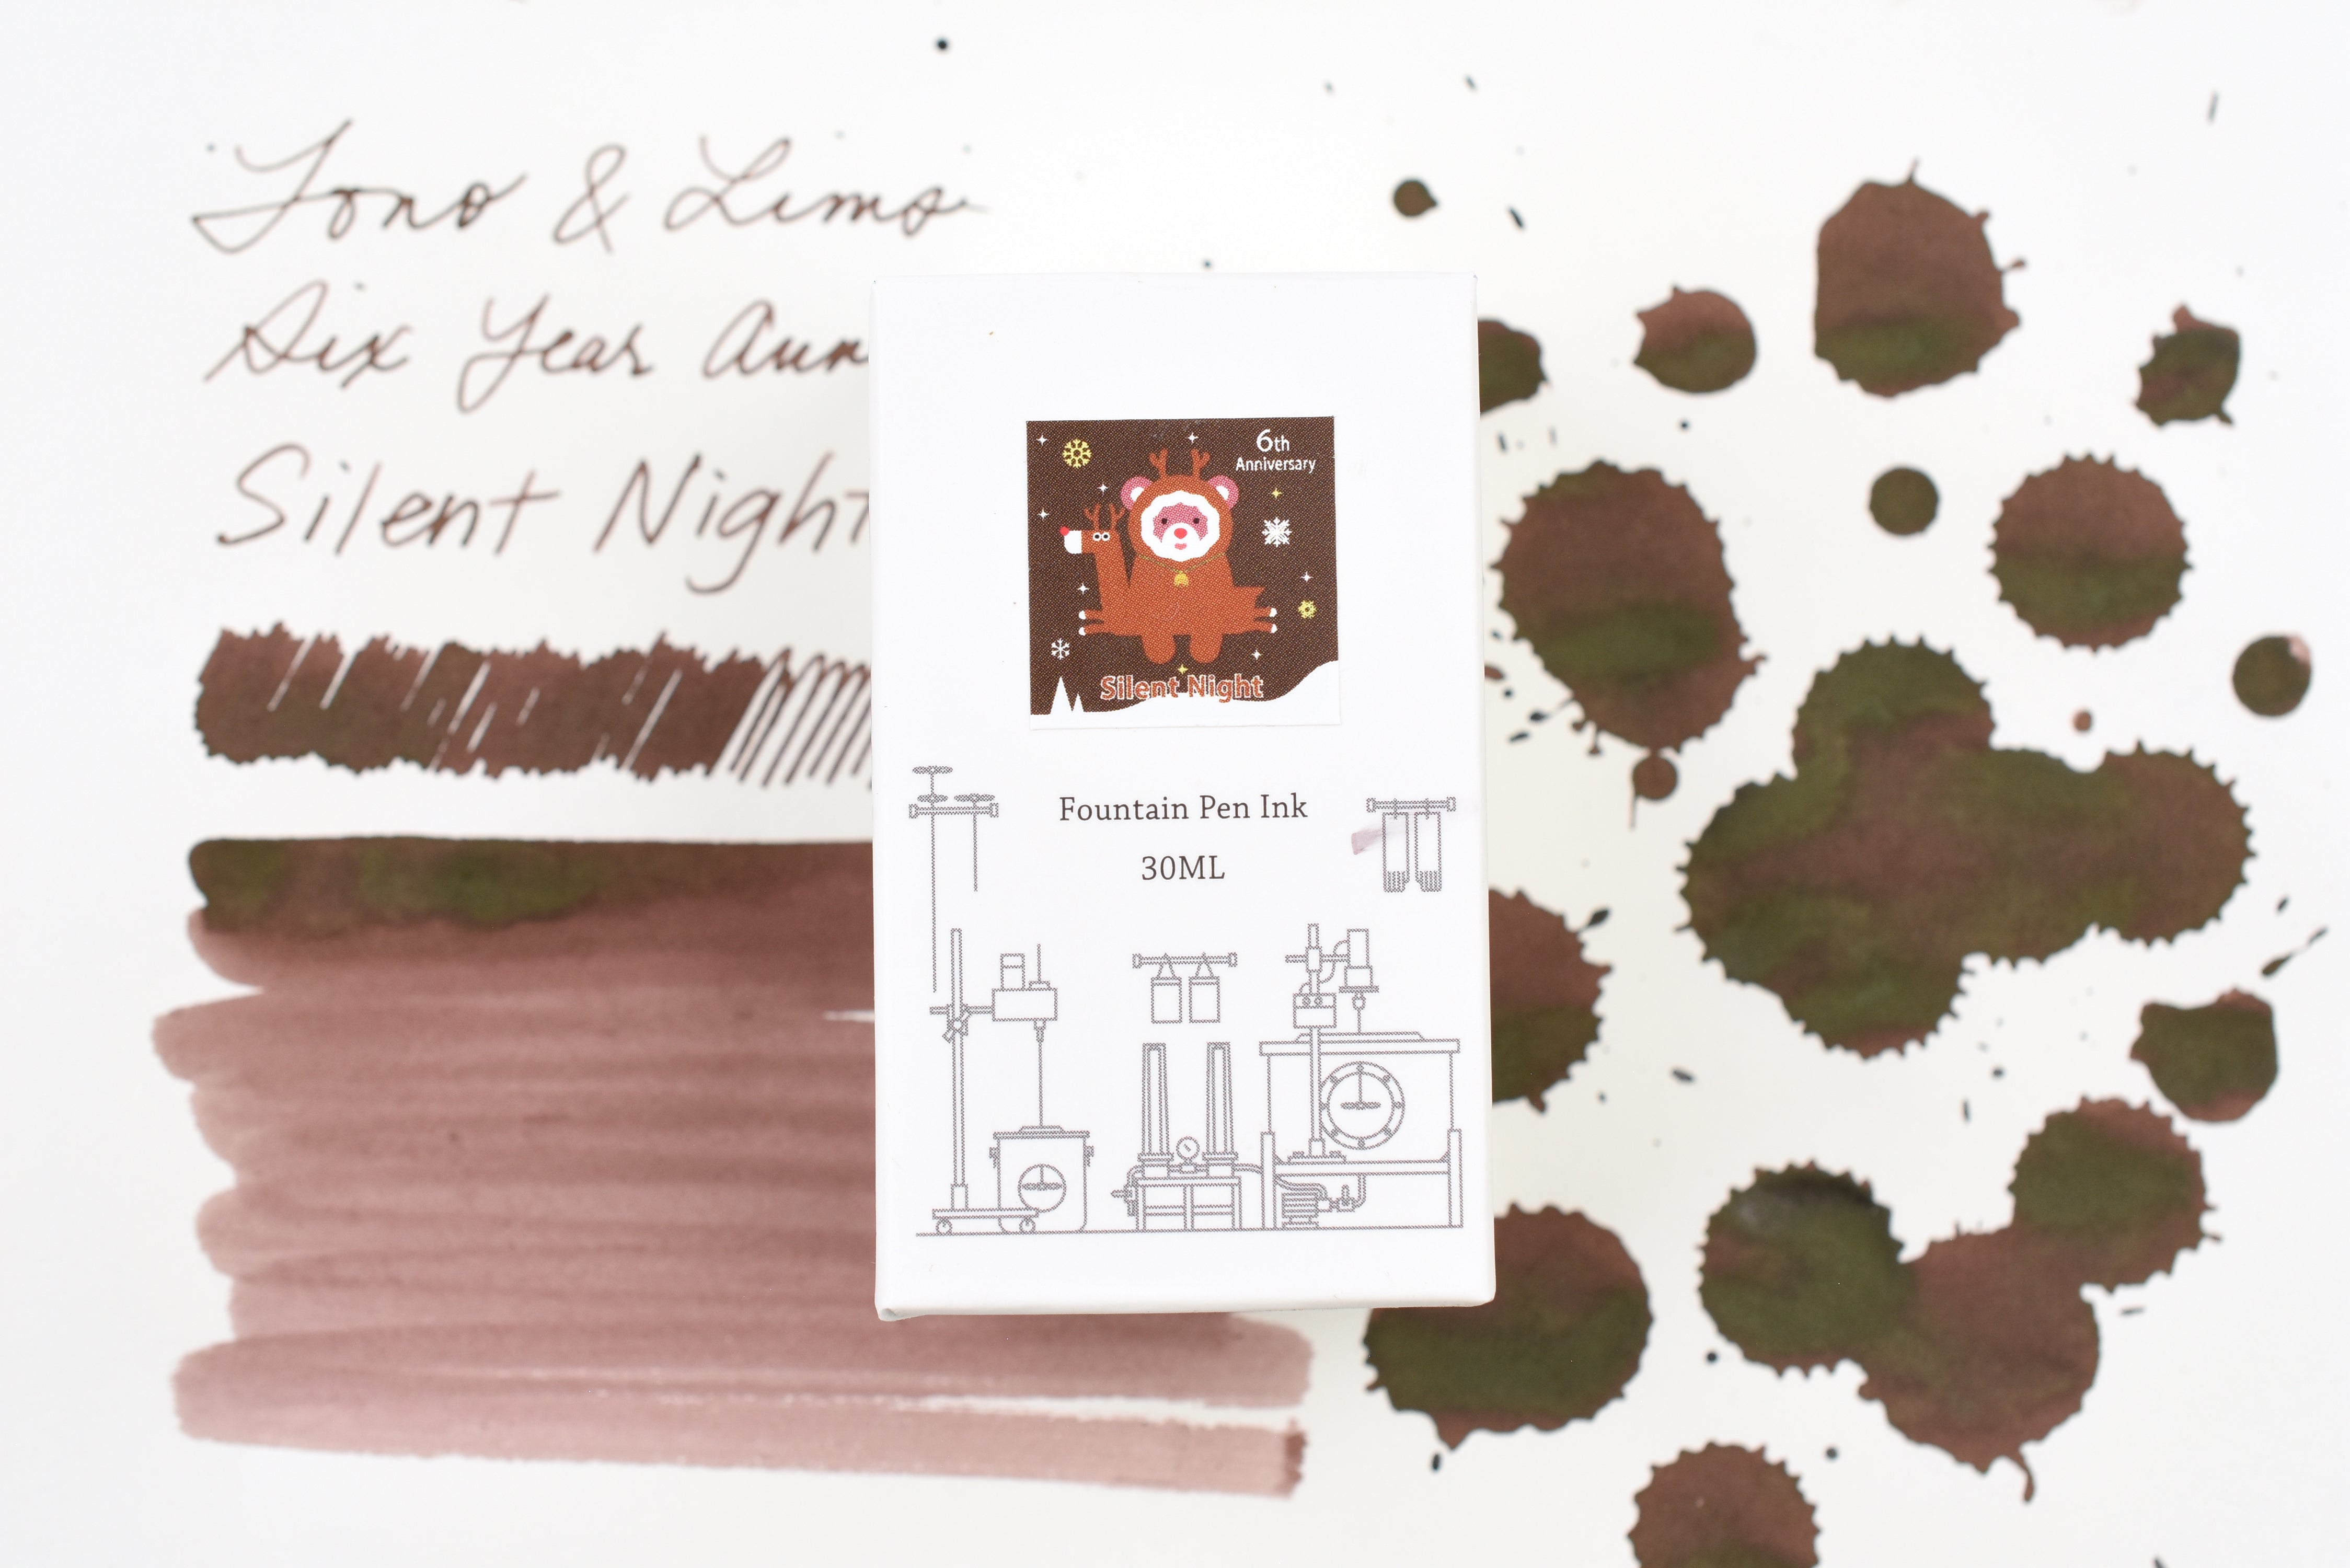 Tono & Lims
Six Year Ann
Silent Night
6th
Anniversary
Silent Night
Fountain Pen Ink
30ML